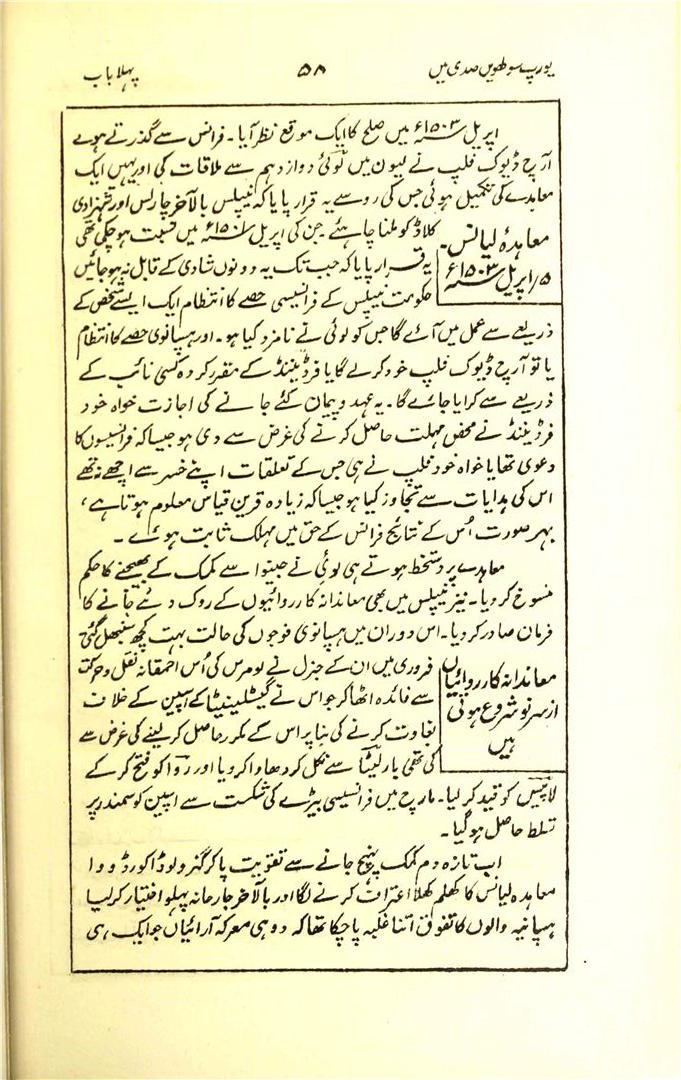 یورپ سولھویں صدی میں ۵۸ پہلا باب
اپریل ۱۵۰۳ء میں صلح کا ایک موقع نظر آیا۔ فرانس سے گذرتے ہوے
آرچ ڈیوک فلپ نے لیون میں لوئی دوازدہم سے ملاقات کی اور یہیں ایک
معاہدے کی تکمیل ہوئی جس کی رو سے یہ قرار پایا کہ نیپلس بالآخر چارلس اور شہزادی
کلاڈ کو ملنا چاہئے جن کی اپریل ۱۵۰۱ء میں نسبت ہو چکی تھی
معاہدۂ لیانس۔
۵/اپریل ۱۵۰۳ء
یہ قرار پایا کہ جب تک یہ دونوں شادی کے قابل نہ ہو جائیں
حکومت نیپلس کے فرانسیسی حصے کا انتظام ایک ایسے شخص کے
ذریعے سے عمل میں آئے گا جس کو لوئی نے نامزد کیا ہو۔ اور ہسپانوی حصے کا انتظام
یا تو آرچ ڈیوک فلپ خود کرلے گا یا فرڈیننڈ کے مقرر کردہ کسی نائب کے
ذریعے سے کرایا جائے گا۔ یہ عہد و پیمان کئے جانے کی اجازت خواہ خود
فرڈیننڈ نے محض مہلت حاصل کرنے کی غرض سے دی ہو جیسا کہ فرانسیسوں کا
دعوی تھا یا خواہ خود فلپ نے ہی جس کے تعلقات اپنے خسر سے اچھے نہ تھے
اس کی ہدایات سے تجاوز کیا ہو جیسا کہ زیادہ قرین قیاس معلوم ہوتا ہے،
بہر صورت اُس کے نتائج فرانس کے حق میں مہلک ثابت ہوئے۔
معاہدے پر دستخط ہوتے ہی لوئی نے جینوا سے کمک کے بھیجنے کا حکم
منسوخ کر دیا۔ نیز نیپلس میں بھی معاندانہ کارروائیوں کے روک دئے جانے کا
فرمان صادر کر دیا۔ اس دوران میں ہسپانوی فوجوں کی حالت بہت کچھ سنبھل گئی
معاندانہ کارروائیاں
از سر نو شروع ہوتی
ہیں
فروری میں ان کے جنرل نے نومرس کی اُس احمقانہ نقل و حرکت
سے فائدہ اٹھا کر جو اس نے کیٹلینیٹا کے اسپین کے خلاف
بغاوت کرنے کی بنا پر اس کے مکرر حاصل کر لینے کی غرض سے
کی تھی بارلیٹا سے نکل کر دھاوا کر دیا اور روا کو فتح کر کے
لا پیس کو قید کر لیا۔ مارچ میں فرانسیسی بیڑے کی شکست سے اسپین کو سمندر پر
تسلط حاصل ہو گیا۔
اب تازہ دم کمک پہنچ جانے سے تقویت پاکر گنزولو ڈا کورڈووا
معاہدہ لیانس کا کھلم کھلا اعتراف کرنے لگا اور بالآخر جارحانہ پہلو اختیار کر لیا
ہسپانیہ والوں کا تفوق اتنا غلبہ پا چکا تھا کہ دو ہی معرکہ آرائیاں جو ایک ہی